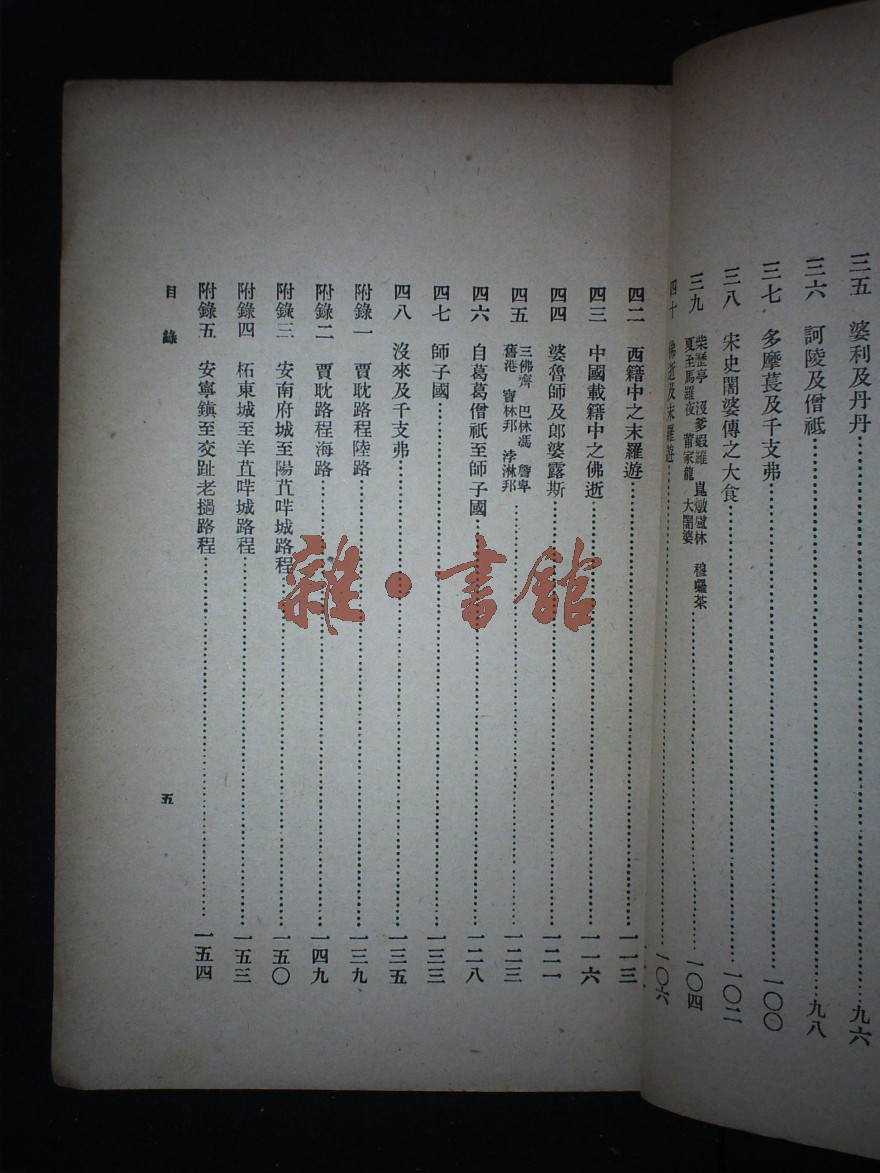 三五 婆利及丹丹……九六
三六 訶陵及僧祇……九八
三七 多摩萇及千支弗……一〇〇
三八 宋史闍婆傳之大食……一〇二
三九 柴歷亭 沒爹蝦羅 崑燉盧林 穆囉茶
夏至馬羅夜 莆家龍 大闍婆……一〇四
四十 佛逝及末羅遊……一〇六
四二 西籍中之末羅遊……一一三
四三 中國載籍中之佛逝……一一六
四四 婆魯師及郎婆露斯……一二一
四五 三佛齊 巴林馮 詹卑
舊港 寶林邦 浡淋邦……一二三
四六 自葛葛僧祇至師子國……一二八
四七 師子國……一三三
四八 沒來及千支弗……一三五
附錄一 賈耽路程陸路……一三九
附錄二 賈耽路程海路……一四九
附錄三 安南府城至陽苴哶城路程……一五〇
附錄四 柘東城至羊苴哶城路程……一五三
附錄五 安寧鎮至交趾老撾路程……一五四
目錄
五
雜·書館